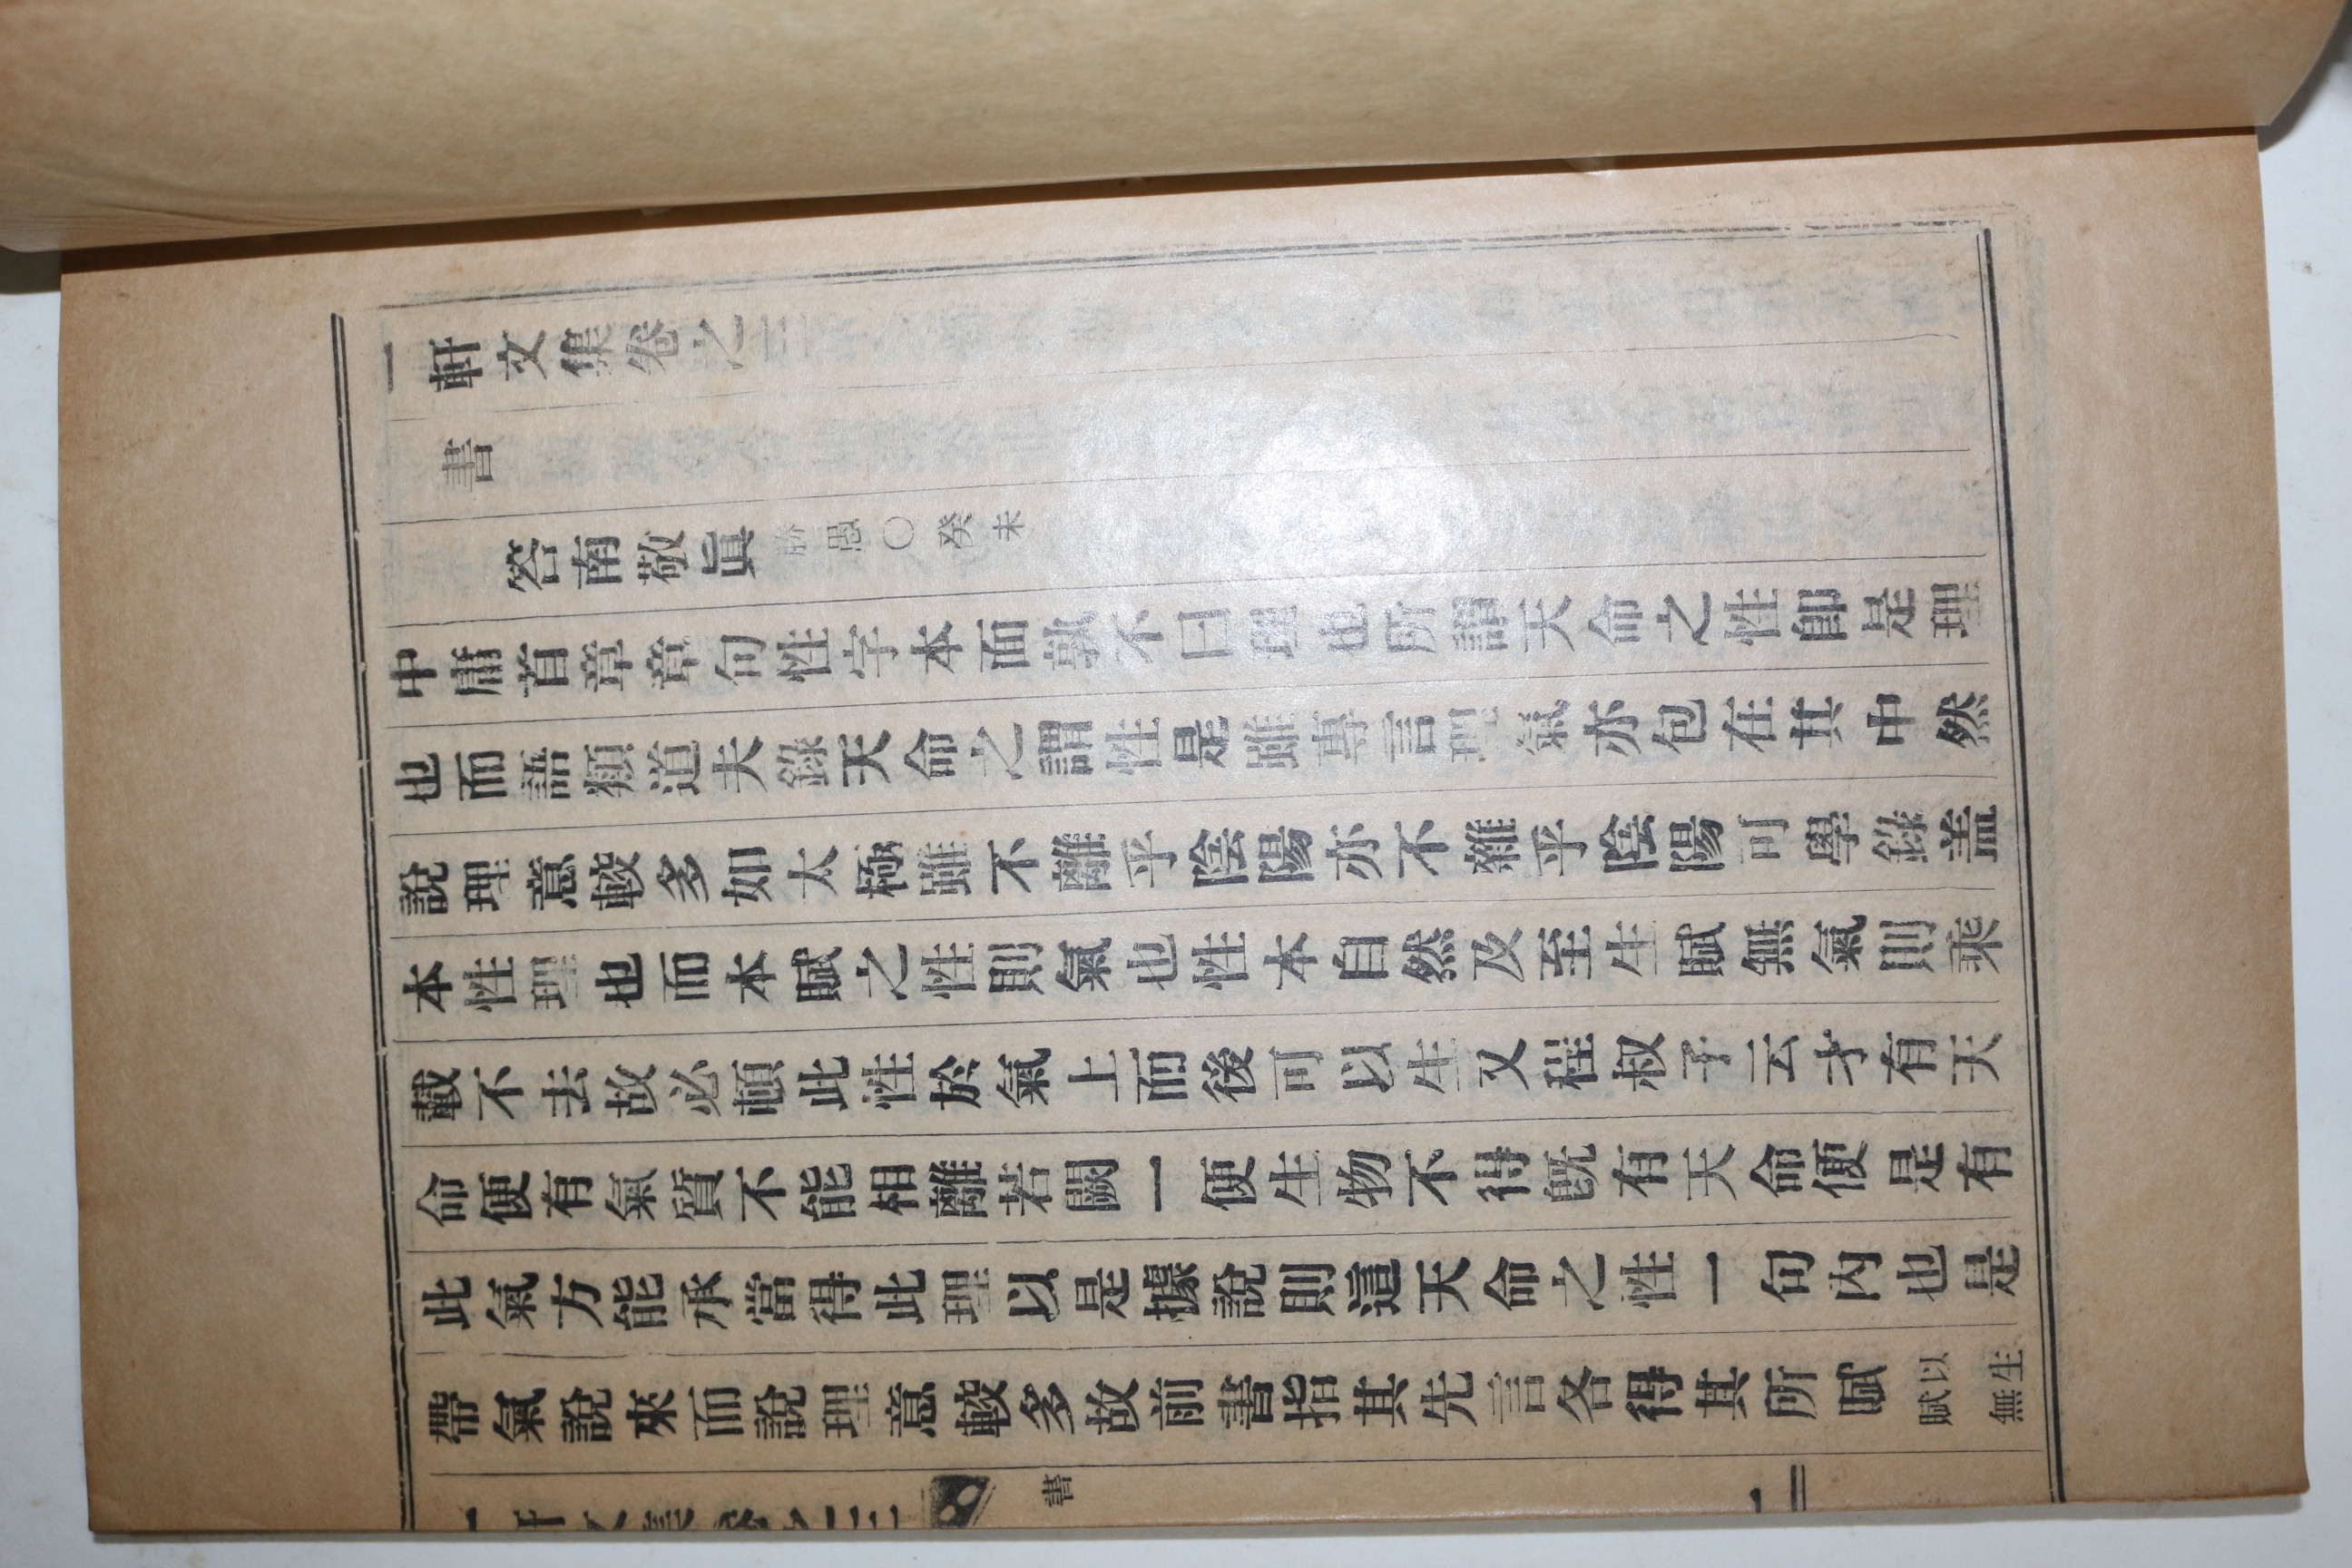 一軒文集卷之三
書
答南敬眞勝愚〇癸未
中庸首章章句性字本面孰不曰理也所謂天命之性卽是理
也而語類道夫錄天命之謂性是雖專言理氣亦包在其中然
說理意較多如太極雖不離乎陰陽亦不雜乎陰陽可學錄盖
本性理也而本賦之性則氣也性本自然及至生賦無氣則乘
載不去故必頓此性於氣上而後可以生又程叔子云才有天
命便有氣質不能相離若闕一便生物不得旣有天命便是有
此氣方能承當得此理以是據說則這天命之性一句內也是
帶氣說來而說理意較多故前書指其先言各得其所賦以生賦無
一軒文集卷之三
書
一